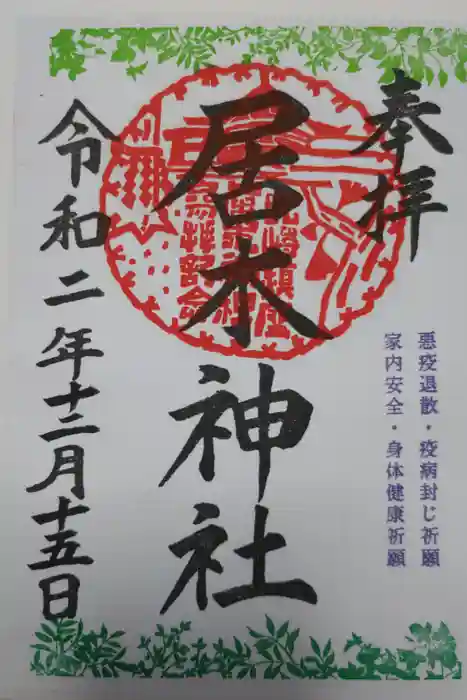 奉拝
悪疫退散・疫病封じ祈願
家内安全・身体健康祈願
居木神社
令和二年十二月十五日